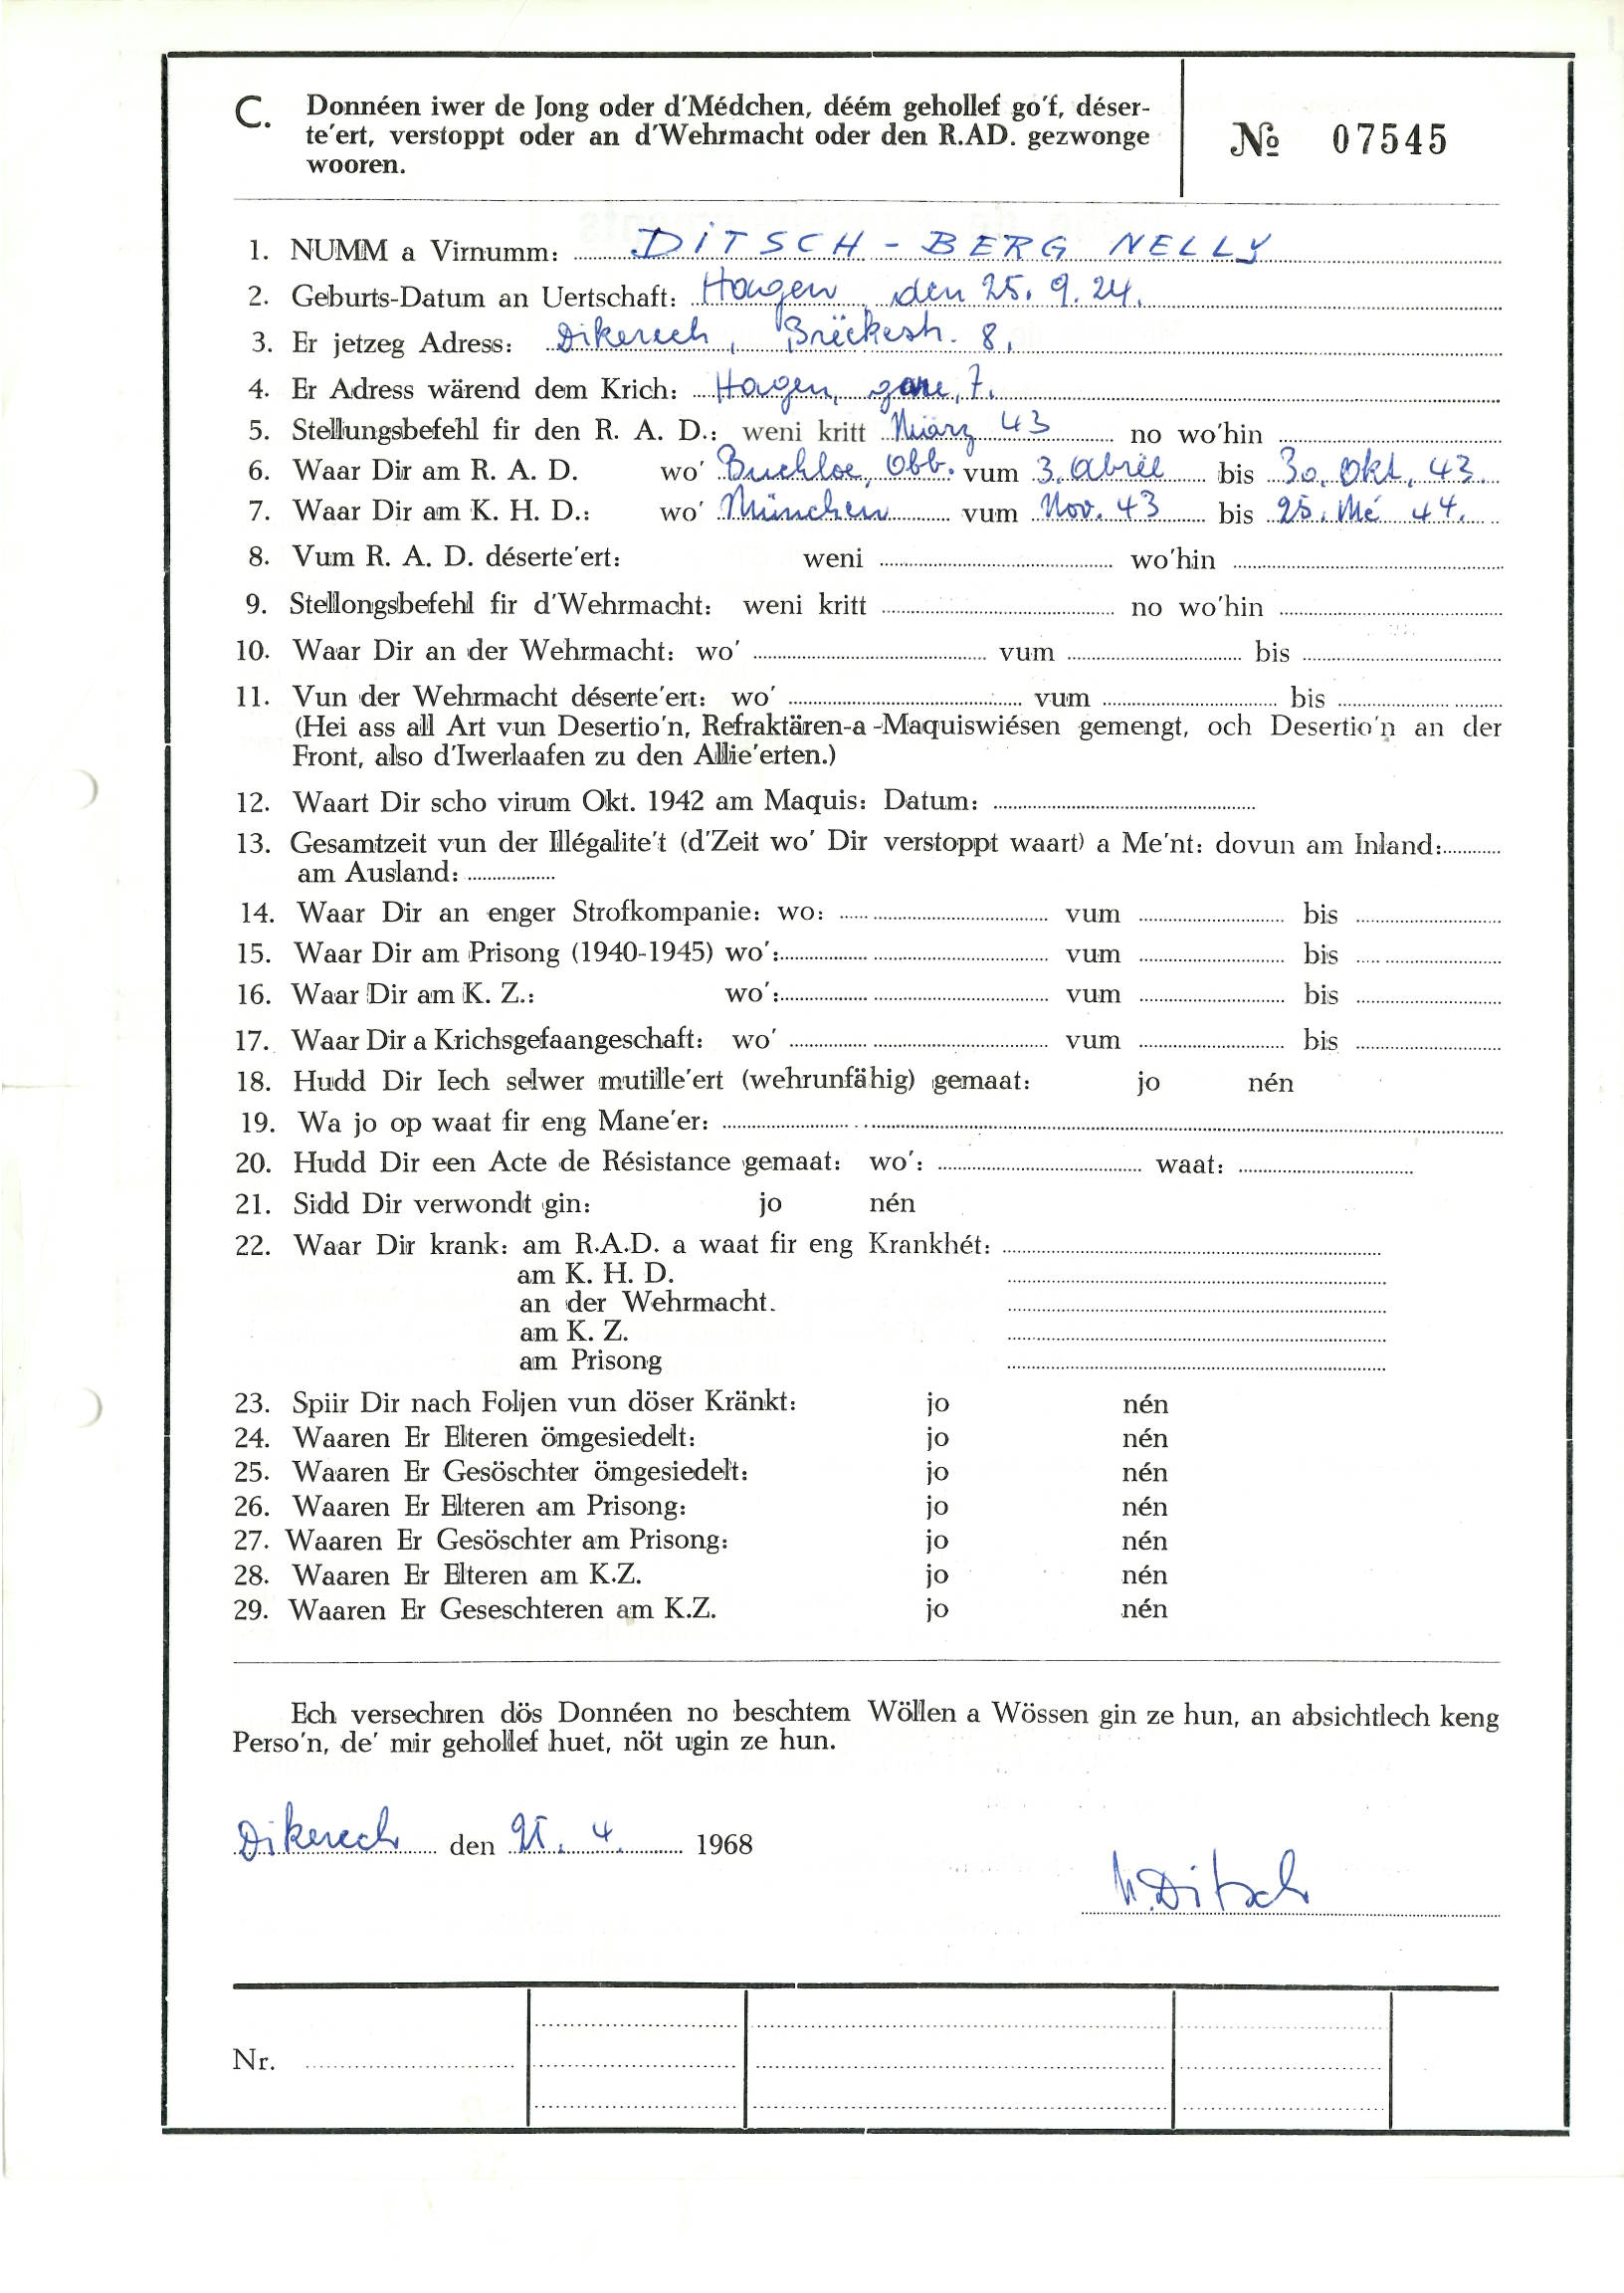 C. Donnéen iwer de Jong oder d'Médchen, déém gehollef go'f, déser-
te'ert, verstoppt oder an d'Wehrmacht oder den R.AD. gezwonge
wooren.
№ 07545
1. NUMM a Virnumm: DITSCH - BERG NELLY
2. Geburts-Datum an Uertschaft: Hagen, den 25. 9. 24.
3. Er jetzeg Adress: Dikerech, Bréckestr. 8.
4. Er Adress wärend dem Krich: Hagen, gare, 7.
5. Stellungsbefehl fir den R. A. D.: weni kritt März 43 no wo'hin
6. Waar Dir am R. A. D. wo' Buchloe, Obb. vum 3. Abrël bis 30. Okt. 43.
7. Waar Dir am K. H. D.: wo' München vum Nov. 43 bis 25. Mé 44.
8. Vum R. A. D. déserte'ert: weni wo'hin
9. Stellongsbefehl fir d'Wehrmacht: weni kritt no wo'hin
10. Waar Dir an der Wehrmacht: wo' vum bis
11. Vun der Wehrmacht déserte'ert: wo' vum bis
(Hei ass all Art vun Desertio'n, Refraktären-a-Maquiswiésen gemengt, och Desertio'n an der
Front, also d'Iwerlaafen zu den Allie'erten.)
12. Waart Dir scho virum Okt. 1942 am Maquis: Datum:
13. Gesamtzeit vun der Illégalite't (d'Zeit wo' Dir verstoppt waart) a Me'nt: dovun am Inland:
am Ausland:
14. Waar Dir an enger Strofkompanie: wo: vum bis
15. Waar Dir am Prisong (1940-1945) wo': vum bis
16. Waar Dir am K. Z.: wo': vum bis
17. Waar Dir a Krichsgefaangeschaft: wo' vum bis
18. Hudd Dir Iech selwer mutille'ert (wehrunfähig) gemaat: jo nén
19. Wa jo op waat fir eng Mane'er:
20. Hudd Dir een Acte de Résistance gemaat: wo': waat:
21. Sidd Dir verwondt gin: jo nén
22. Waar Dir krank: am R.A.D. a waat fir eng Krankhét:
am K. H. D.
an der Wehrmacht.
am K. Z.
am Prisong
23. Spiir Dir nach Foljen vun döser Kränkt: jo nén
24. Waaren Er Elteren ömgesiedelt: jo nén
25. Waaren Er Gesöschter ömgesiedelt: jo nén
26. Waaren Er Elteren am Prisong: jo nén
27. Waaren Er Gesöschter am Prisong: jo nén
28. Waaren Er Elteren am K.Z. jo nén
29. Waaren Er Geseschteren am K.Z. jo nén
Ech versechren dös Donnéen no beschtem Wöllen a Wössen gin ze hun, an absichtlech keng
Perso'n, de' mir gehollef huet, nöt ugin ze hun.
Dikerech den 4. 1968
N. Ditsch
Nr.